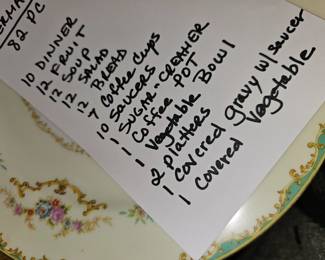 82 PC
10 DINNER
12 FRUIT
12 SOUP
12 SALAD
12 BREAD
7 Coffee Cups
10 SAUCERS
1 SUGAR-CREAMER
1 Coffee POT
1 Vegetable Bowl
2 Platters
1 covered gravy w/ saucer
1 covered vegetable